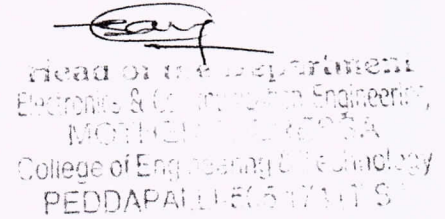 Head of the Department
Electronics & Communication Engineering,
MOTHER THERESA
College of Engineering & Technology
PEDDAPALLI-505 174 (T S)